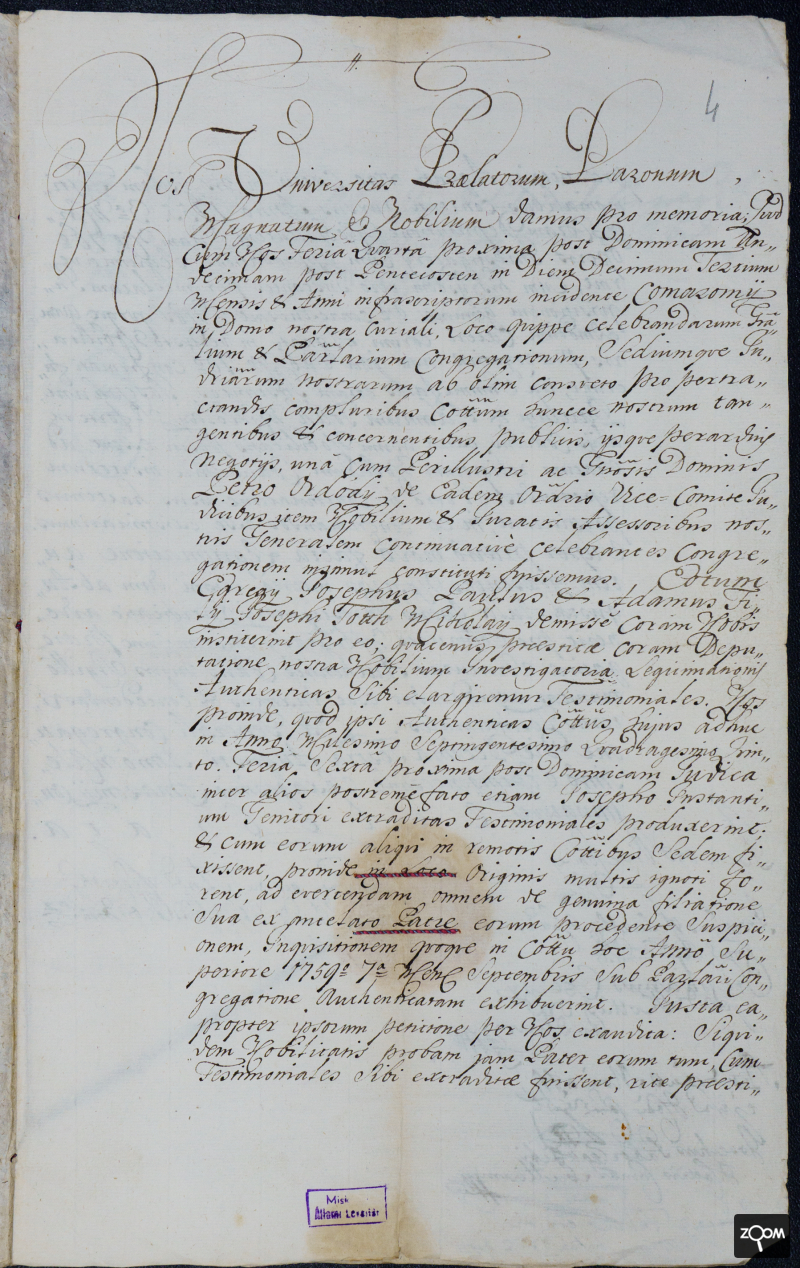 4
Nos Universitas Prælatorum, Baronum,
Magnatum & Nobilium damus pro memoria; Quod
Cum Nos Feriâ Quartâ proxima post Dominicam Un„
decimam post Pentecosten in Diem Decimum Tertium
Mensis & Anni infrascriptorum incidente Comaromij
in Domo nostra Curiali, Loco quippe celebrandarum Grãl„
lium & Parlarium Congregationum, Sediumque Ju„
driarum nostrarum ab olim consveto pro pertra„
ctandis compluribus Cottum hunce nostrum tan„
gentibus & concernentibus publicis, ijsque perarduis
Negotijs, unâ Cum Perillustri ac Gnosis Dominis
Petro Ordódÿ de Eadem Ordrio Vice-Comite Ju„
dicibus item Nobilium & Juratis Assessoribus nos„
tris Generalem Continuativè celebrantes Congre„
gationem insimul constituti fuissemus. Eotum
Egregij Josephus Paulus & Adamus Fi„
lij Josephi Totth Miholay demisse coram Nobis
institerint pro eo; quatenus præstitæ coram Depu„
tatione nostra Nobilium Investigatoria Legitimationis
Authenticas Sibi elargiremur Testimoniales. Nos
proinde, quod ipsi Authenticas Cottus hujus adhuc
in Anno Milesimo Septingentesimo Quadragesimo Quin„
to. Feria Sexta proxima post Dominicam Judica
inter alios postremè fato etiam Josepho Instanti„
um Genitori extraditas Testimoniales produxerint;
& cum eorum aliqui in remotis Cottibus Sedem fi„
xissent, proinde in Loco Originis multis ignoti fo„
rent, ad evertendam omnem de genuina filiatione
Sua ex antelato Patre eorum procedente Suspici„
onem, Inquisitionem quoque in Cottu hoc Anno Su„
periore 1759 7 Mens Septembris Sub Parlari Con„
gregatione Authenticatam exhibuerint. Justa ea„
propter ipsorum petitione per Nos exaudita: Siqui„
dem Nobilitaris probam jam Pater eorum tum, Cum
Testimoniales Sibi extraditæ fuissent, rite præsti„
Misk
Állami Levéltár
ZOOM